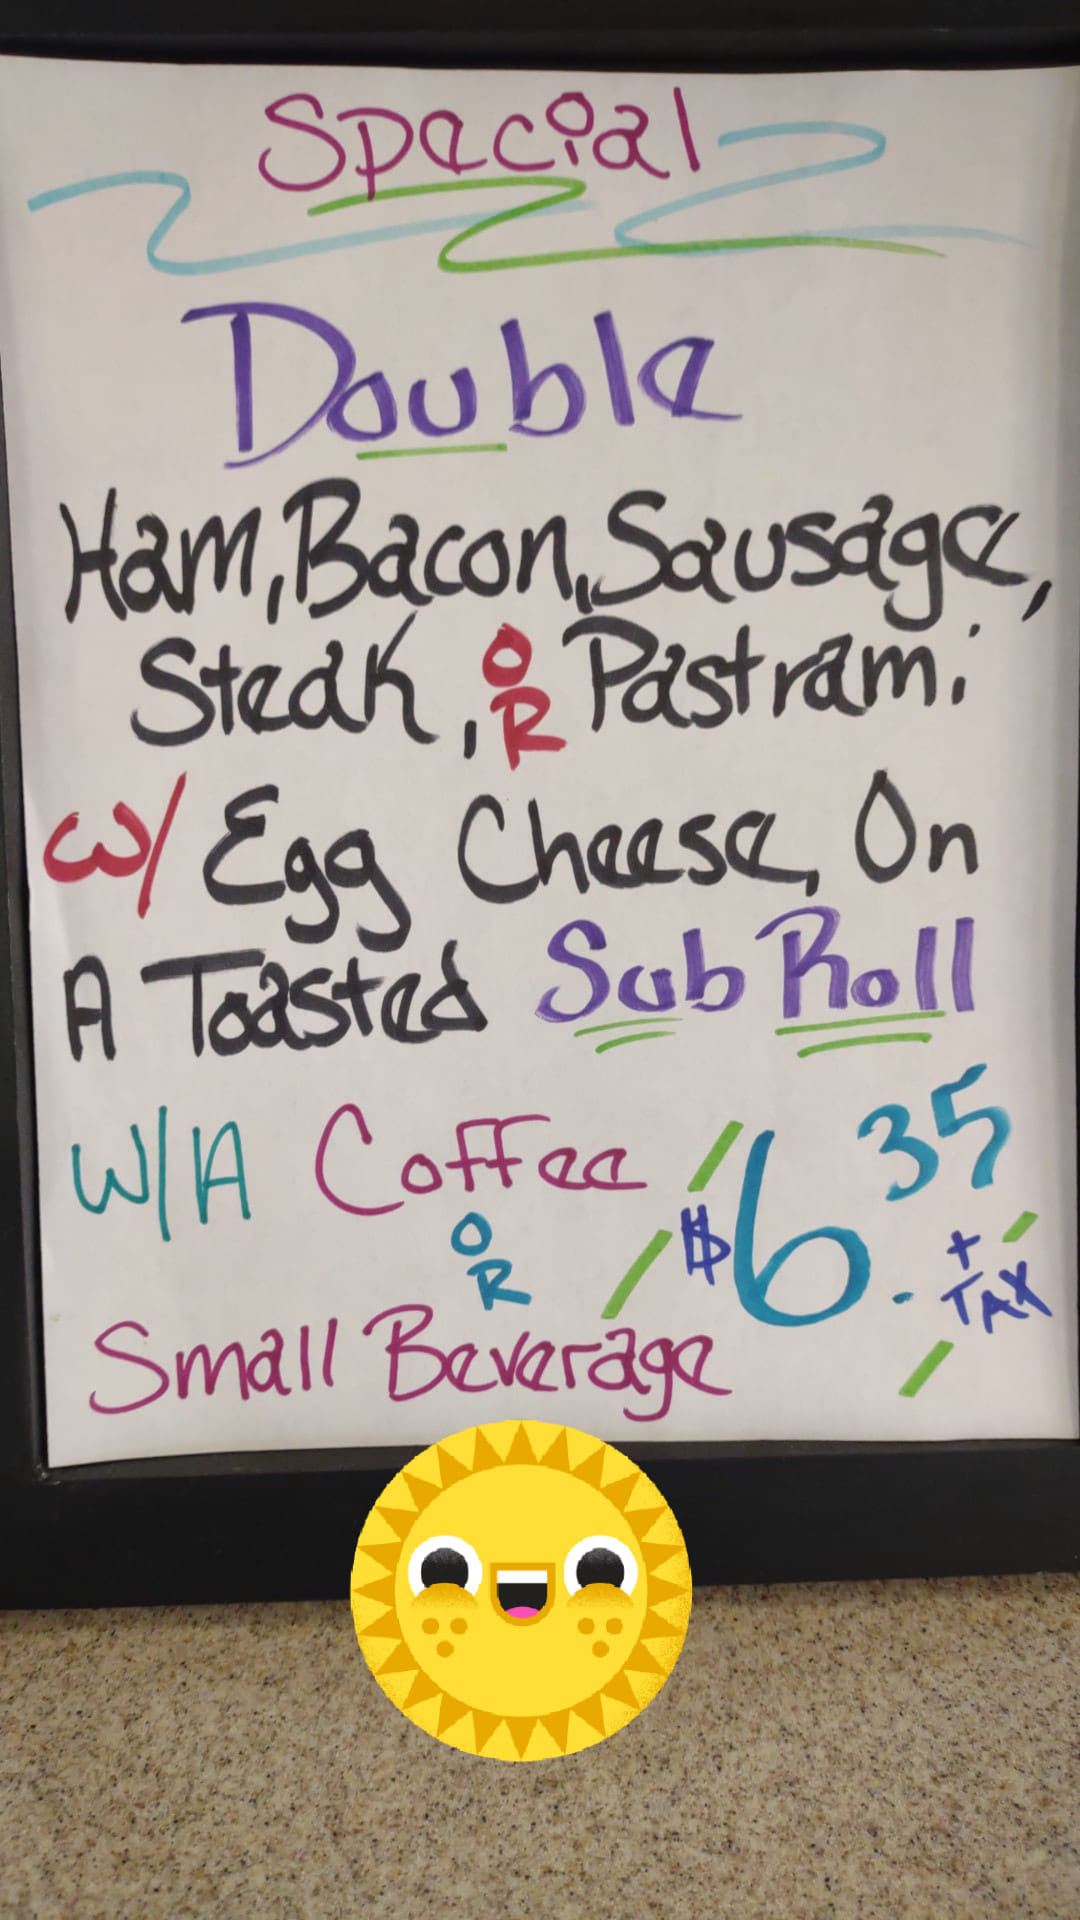 Special
Double
Ham, Bacon, Sausage,
Steak, OR Pastrami
W/ Egg Cheese, On
A Toasted Sub Roll
W/A Coffee
OR
Small Beverage
$6.35
+ TAX